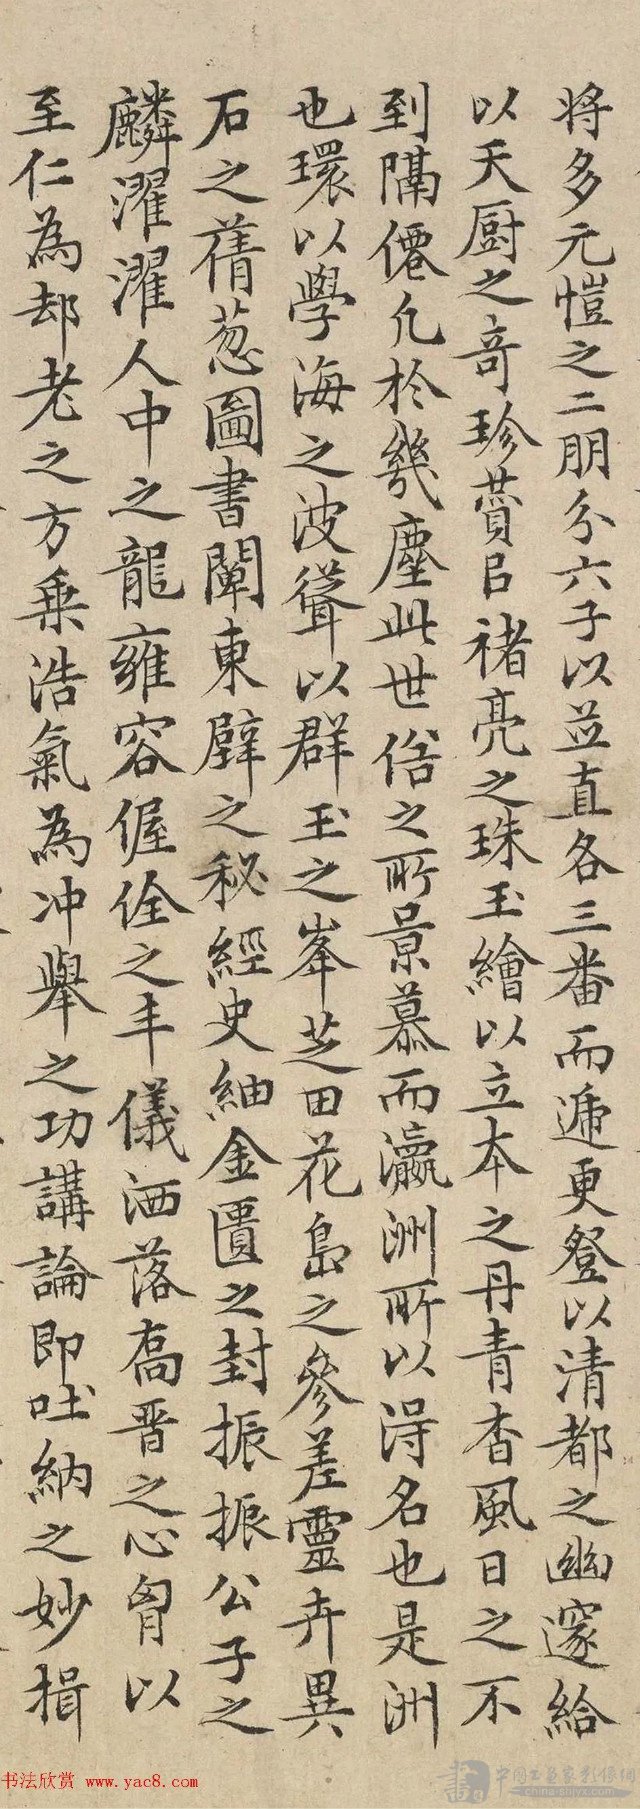 将多元愷之二朋分六子以並直各三番而遞更登以清都之幽邃給
以天厨之奇珍賛㠯褚亮之珠玉繪以立本之丹青杳風日之不
到隔僊凡於幾塵此世俗之所景慕而瀛洲所以得名也是洲
也環以學海之波聳以群玉之峯芝田花島之參差靈卉異
石之蒨葱圖書闡東壁之秘經史紬金匱之封振振公子之
麟濯濯人中之龍雍容偓佺之丰儀洒落喬晋之心胷以
至仁為却老之方乗浩氣為冲舉之功講論即吐納之妙揖
书法欣赏 www.yac8.com
中国书画家影像网
china-shjyx.com